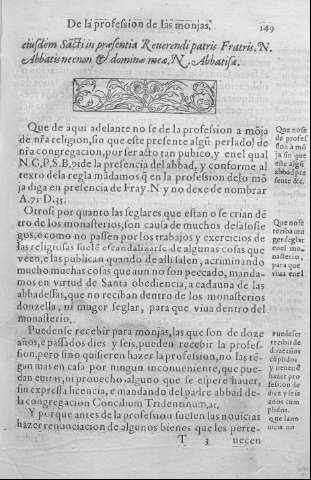 De la profession de las monjas.
149
eiusdem Sācti in præsentia Reuerendi patris Fratris. N.
Abbatis necnon & dominæ meæ. N. Abbatisæ.
Que de aqui adelante no se de la profession a mōja
de nr̄a religion, sin que este presente algū perlado de
nr̄a congregacion, por ser acto tan pubico, y en el qual
N.G.P.S.B. pide la presencia del abbad, y conforme al
texto dela regla mādamos q̄ en la profession de so mō
ja diga en presencia de Fray. N. y no dexe de nombrar
A. 71. D. 35.
Otrosi por quanto las seglares que estan o se crian dē
tro de los monesterios, son causa de muchos desasosie
gos, e como no passen por los trabajos y exercicios de
las religiosas suelē escandalizarse de algunas cosas que
veen, e las publican quando de alli salen, acriminando
mucho muchas cosas que aun no son peccado, manda-
mos en virtud de Santa obediencia, a cadauna de las
abbadessas, que no reciban dentro de los monasterios
donzella, ni muger seglar, para que viua dentro del
monasterio.
Puedense recebir para monjas, las que son de doze
años, e passados dies y seis, pueden recebir la profes-
sion, pero sino quisieren hazer la profession, no las tē-
gan mas en casa por ningun inconueniente, que pue-
dan euitar, ni prouecho alguno que se espere hauer,
sin expressa licencia, e mandando del padre abbad de-
la congregacion Concilium Tridentinum, ac.
Y porque antes de la profession suelen las nouicias
hazer renunciacion de algunos bienes que les perte-
T 3 necen
Que no se
de profes
sion a mō
ja sin que
este algū
abbad pre
sente &c.
Que no se
reciba mu
ger seglar
en el mo-
nasterio,
para que
viua en el
Puedese
recibir de
doze años
cūplidos
y
hazer pro
fession de
diez y seis
años cum
plidos.